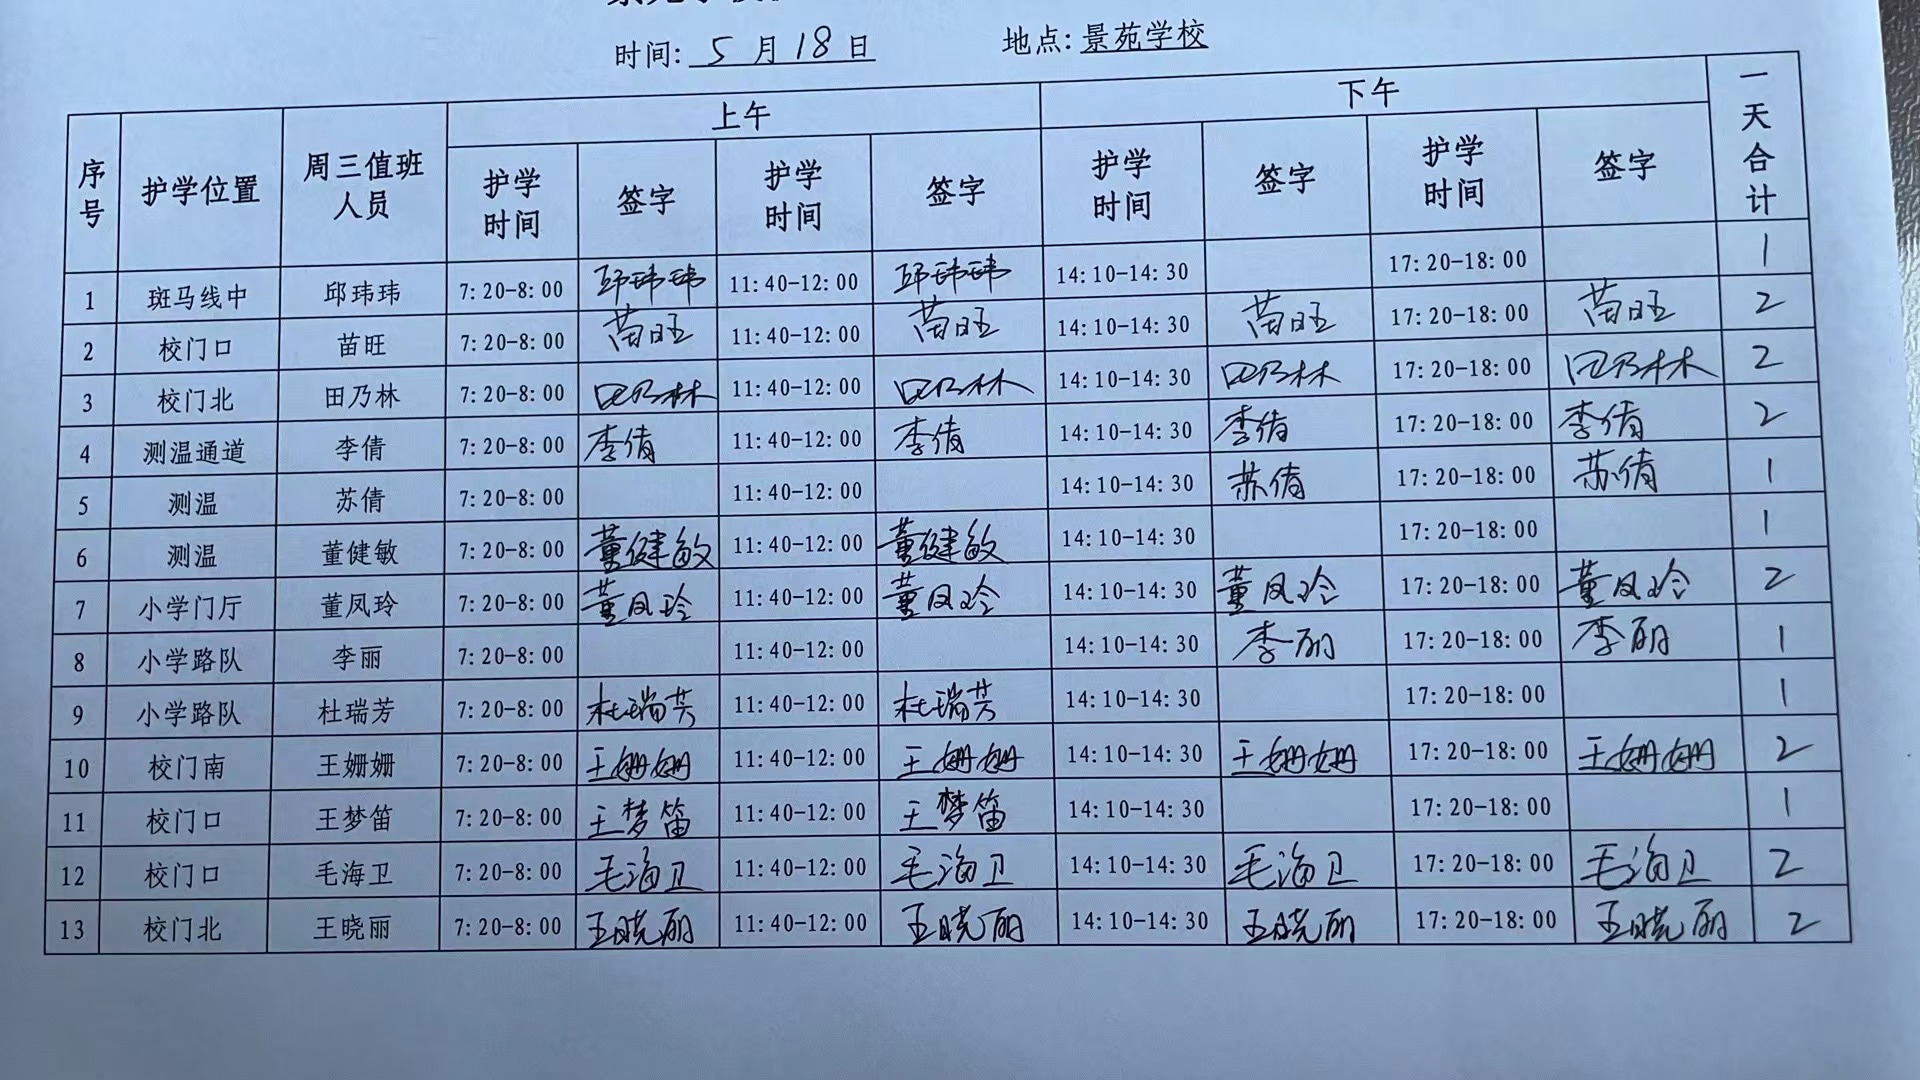 时间: 5月18日 地点: 景苑学校
序号 护学位置 周三值班人员 上午 下午 一天合计
护学时间 签字 护学时间 签字 护学时间 签字 护学时间 签字
1 斑马线中 邱玮玮 7:20-8:00 邱玮玮 11:40-12:00 邱玮玮 14:10-14:30 17:20-18:00 1
2 校门口 苗旺 7:20-8:00 苗旺 11:40-12:00 苗旺 14:10-14:30 苗旺 17:20-18:00 苗旺 2
3 校门北 田乃林 7:20-8:00 田乃林 11:40-12:00 田乃林 14:10-14:30 田乃林 17:20-18:00 田乃林 2
4 测温通道 李倩 7:20-8:00 李倩 11:40-12:00 李倩 14:10-14:30 李倩 17:20-18:00 李倩 2
5 测温 苏倩 7:20-8:00 11:40-12:00 14:10-14:30 苏倩 17:20-18:00 苏倩 1
6 测温 董健敏 7:20-8:00 董健敏 11:40-12:00 董健敏 14:10-14:30 17:20-18:00 1
7 小学门厅 董凤玲 7:20-8:00 董凤玲 11:40-12:00 董凤玲 14:10-14:30 董凤玲 17:20-18:00 董凤玲 2
8 小学路队 李丽 7:20-8:00 11:40-12:00 14:10-14:30 李丽 17:20-18:00 李丽 1
9 小学路队 杜瑞芳 7:20-8:00 杜瑞芳 11:40-12:00 杜瑞芳 14:10-14:30 17:20-18:00 1
10 校门南 王姗姗 7:20-8:00 王姗姗 11:40-12:00 王姗姗 14:10-14:30 王姗姗 17:20-18:00 王姗姗 2
11 校门口 王梦笛 7:20-8:00 王梦笛 11:40-12:00 王梦笛 14:10-14:30 17:20-18:00 1
12 校门口 毛海卫 7:20-8:00 毛海卫 11:40-12:00 毛海卫 14:10-14:30 毛海卫 17:20-18:00 毛海卫 2
13 校门北 王晓丽 7:20-8:00 王晓丽 11:40-12:00 王晓丽 14:10-14:30 王晓丽 17:20-18:00 王晓丽 2